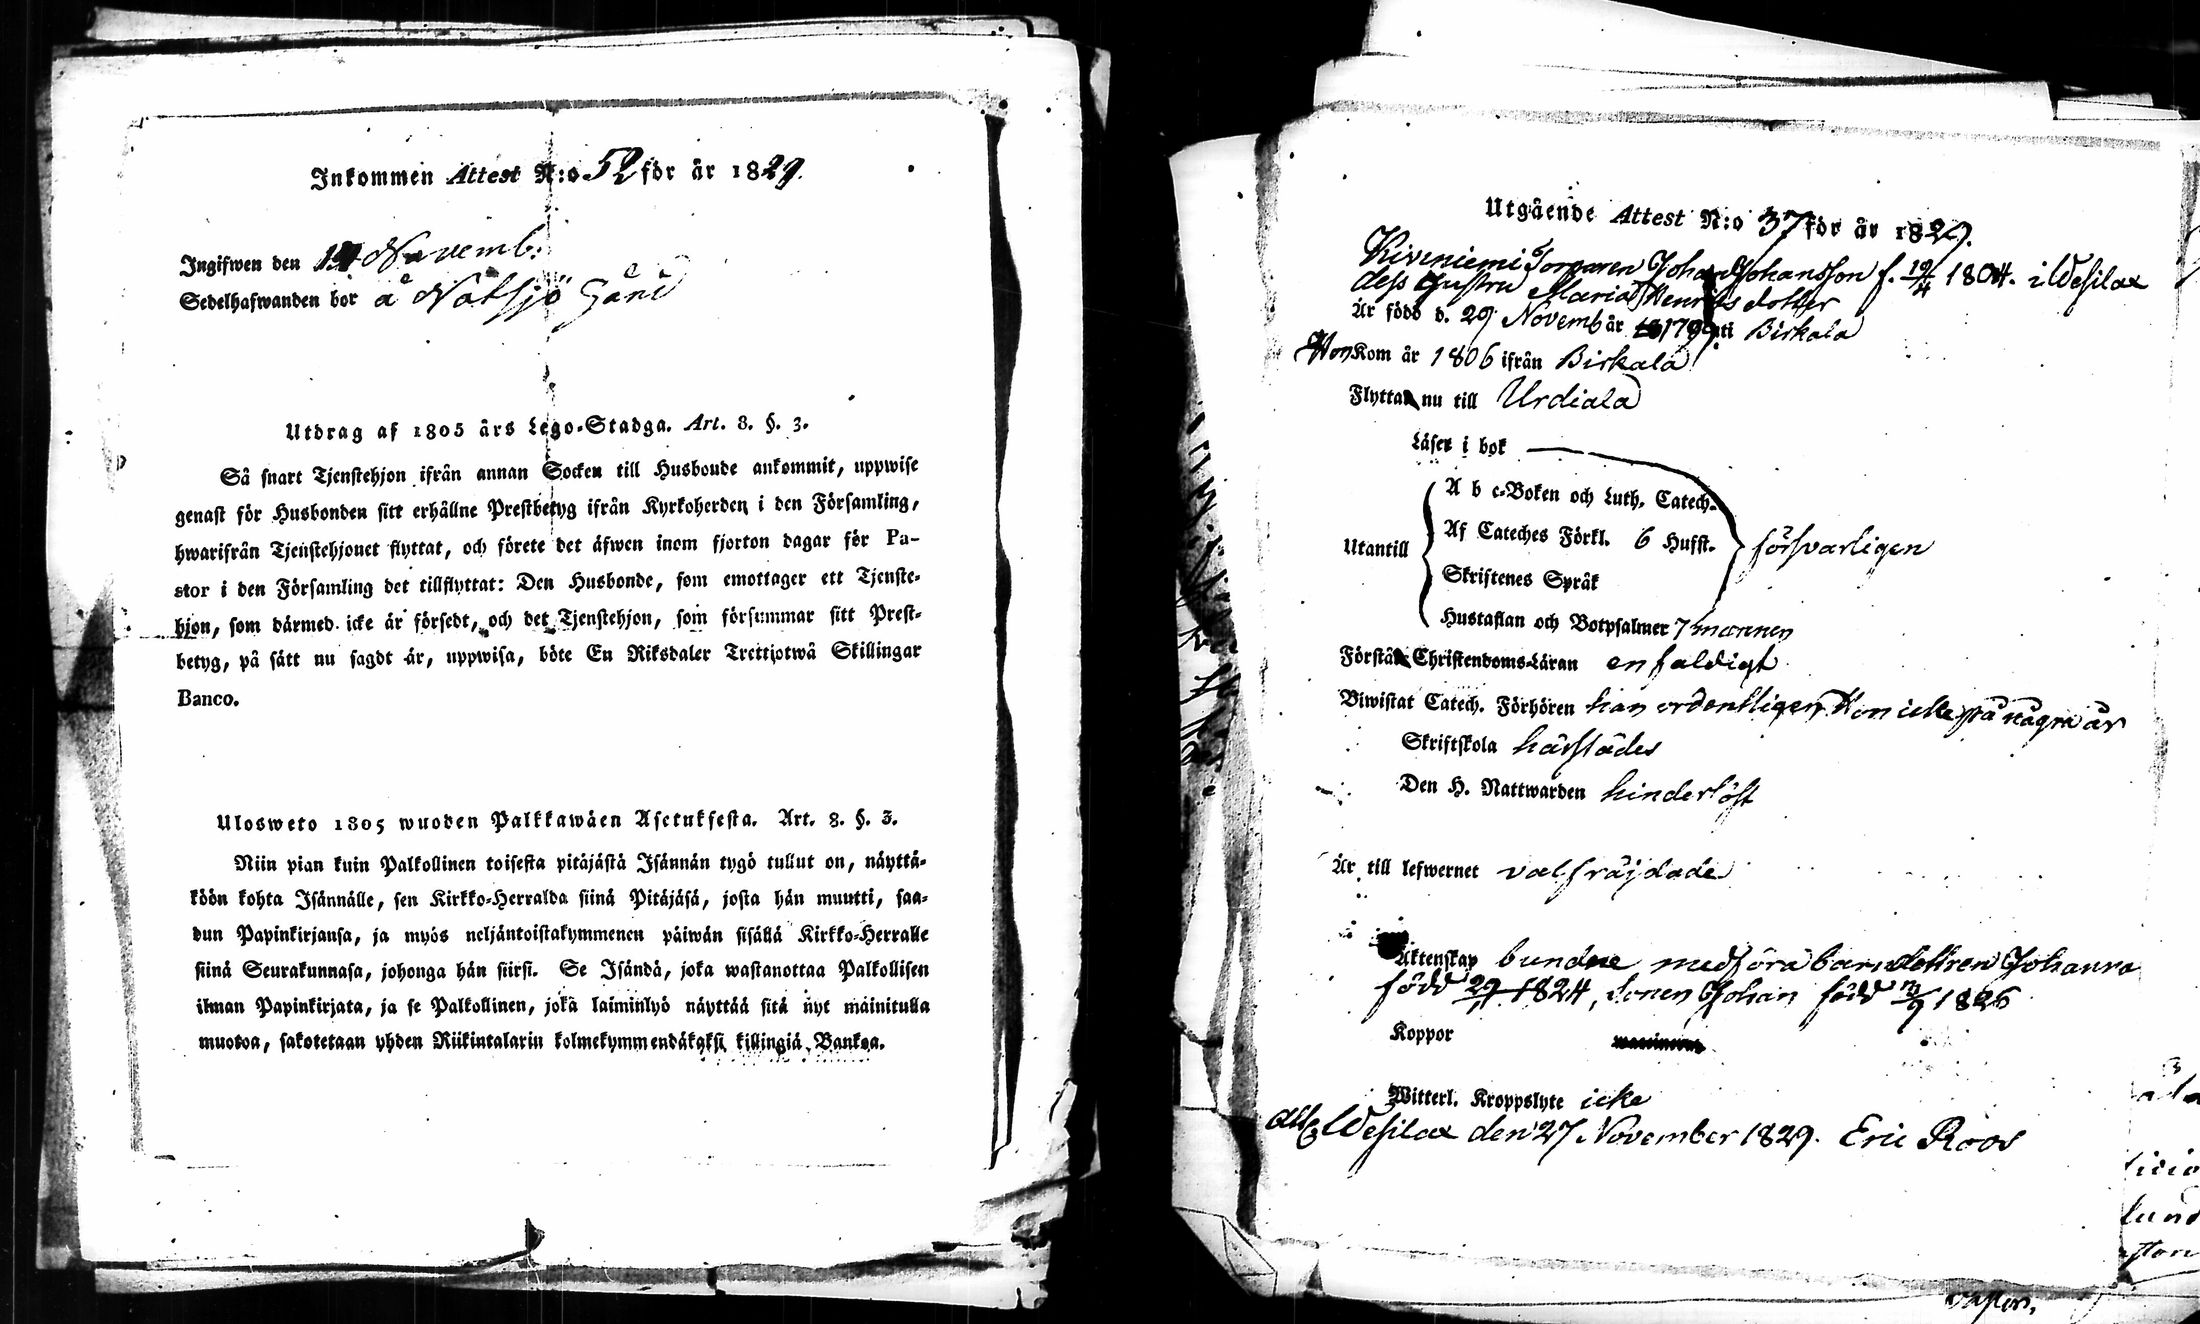 Inkommen Attest N:o 52 för år 1829.
Ingifwen den Novemb.
Sedelhafwanden bor å Nötsjö
Utdrag af 1805 års Lego-Stadga. Art. 8. §. 3.
Så snart Tjenstehjon ifrån annan Socken till Husbonde ankommit, uppwise
genast för Husbonden sitt erhållne Prestbetyg ifrån Kyrkoherden i den Församling,
hwarifrån Tjenstehjonet flyttat, och förete det äfwen inom fjorton dagar för Pa-
stor i den Församling det tillflyttat: Den Husbonde, som emottager ett Tjenste-
hjon, som därmed icke är försedt, och det Tjenstehjon, som försummar sitt Prest-
betyg, på sätt nu sagdt är, uppwisa, böte En Riksdaler Trettjotwå Skillingar
Banco.
Ulosweto 1805 wuoden Palkkawäen Asetuksesta. Art. 8. §. 3.
Niin pian kuin Palkollinen toisesta pitäjästä Isännän tygö tullut on, näyttä-
köön kohta Isännälle, sen Kirkko-Herralda siinä Pitäjäsä, josta hän muutti, saa-
dun Papinkirjansa, ja myös neljäntoistakymmenen päiwän sisällä Kirkko-Herralle
siinä Seurakunnasa, johonga hän siirsi. Se Isändä, joka wastanottaa Palkollisen
ilman Papinkirjata, ja se Palkollinen, joka laiminlyö näyttää sitä nyt mainitulla
muotoa, sakotetaan yhden Riikintalarin kolmekymmendäkaksi killingiä Bankoa.
Utgående Attest N:o 37 för år 1829.
Kiveniemi Torparen Johan Johansson f. 19/4 1804. i Wesilax
dess Hustru Maria Henriksdotter
Är född d. 29 Novemb år 179 uti Birkala
Hon Kom år 1806 ifrån Birkala
Flytta nu till Urdiala
Läser i bok
A b c-Boken och Luth. Catech.
Af Cateches Förkl. 6 Hufst. försvarligen
Utantill
Skriftenes Språk
Hustaflan och Botpsalmer 7 mannen
Förstå Christendoms-Läran enfaldigt
Biwistat Catech. Förhören han ordentligen, Hon icke på några år
Skriftskola härstädes
Den H. Nattwarden hinderlöst
Är till lefwernet välfräjdade
Äktenskap bundne medföra barn dottren Johanna
född 1824, Sonen Johan född 1826
Koppor
Witterl. Kroppslyte icke
Wesilax den 27 November 1829. Eric Roos